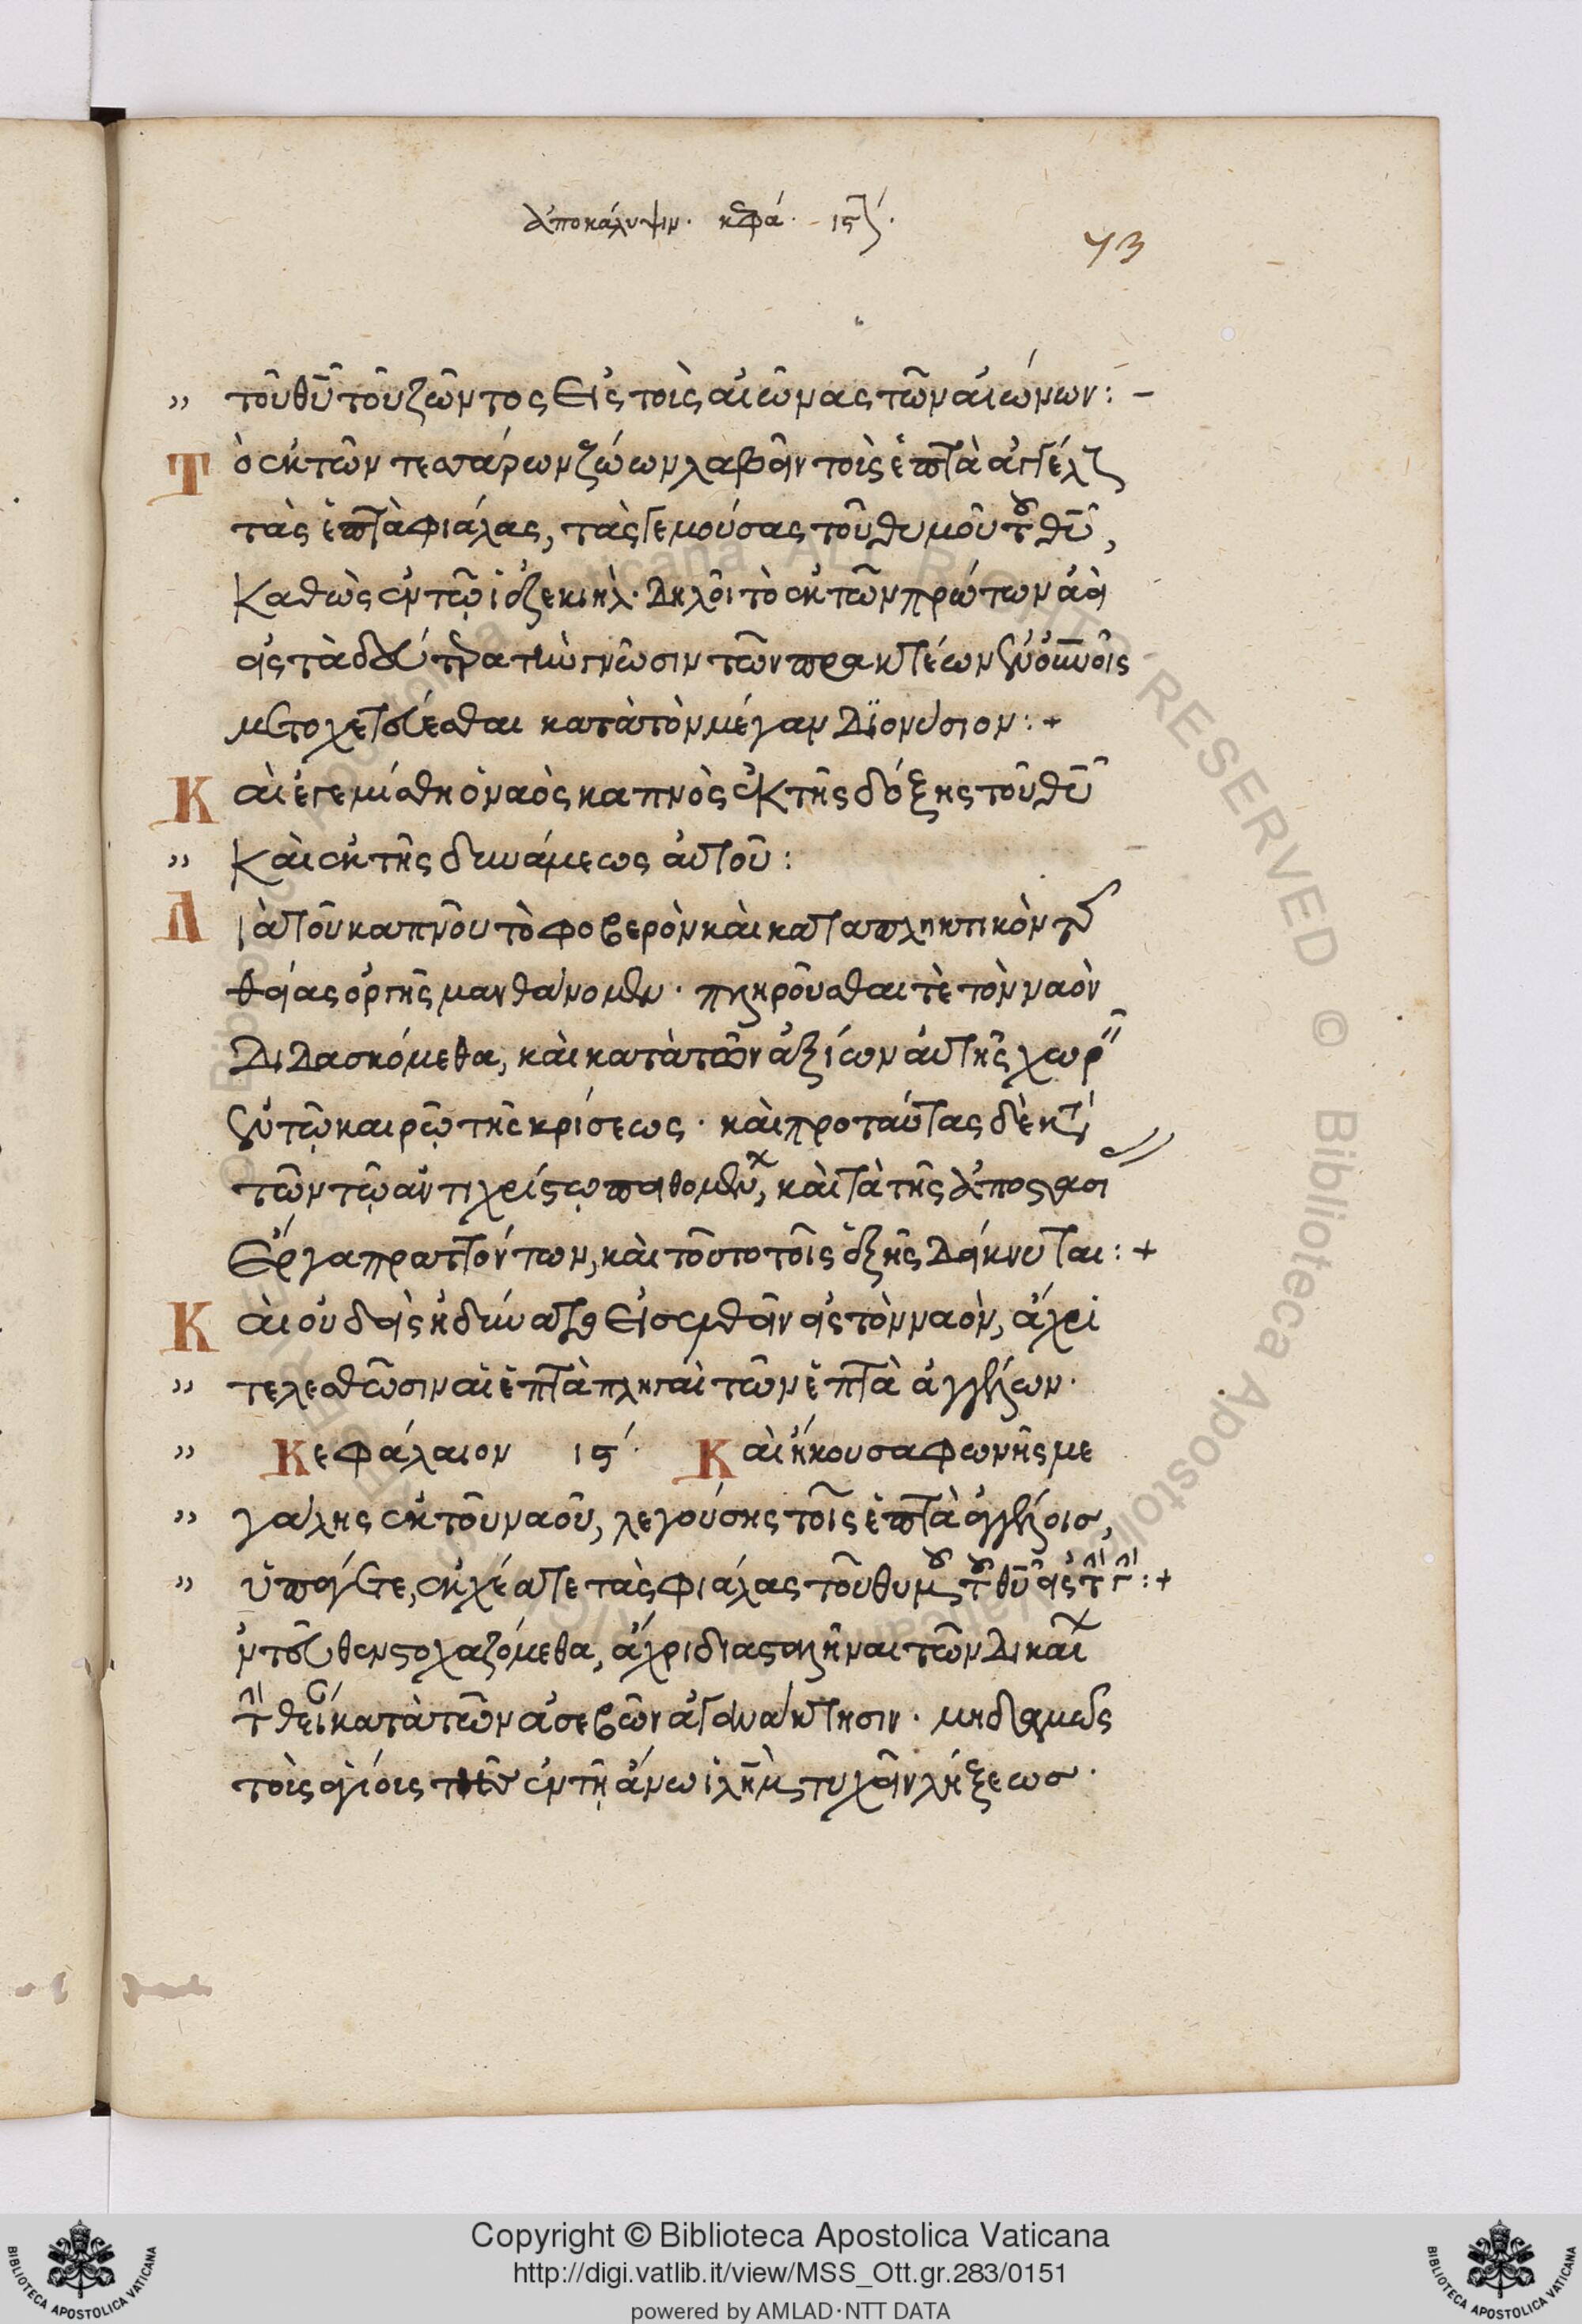 ἀποκάλυψιν. κεφά. ις΄.
73
τοῦ θῦ τοῦ ζῶντος εἰς τοὺς αἰῶνας τῶν αἰώνων: –
Τὸ ἐκ τῶν τεσσάρων ζώων λαβεῖν τοὺς ἑπτὰ ἀγγέλους
τὰς ἑπτὰ φιάλας, τὰς γεμούσας τοῦ θυμοῦ τοῦ θῦ,
καθὼς ἐν τῷ ἰεζεκιὴλ. δηλοῖ τὸ ἐκ τῶν πρώτων ἀεὶ
εἰς τὰ δεύτερα τὴν γνῶσιν τῶν πρακτέων ἐν οὐνοῖς
μετοχετεύεσθαι κατὰ τὸν μέγαν Διονύσιον: +
Καὶ ἐγεμίσθη ὁ ναὸς καπνὸς ἐκ τῆς δόξης τοῦ θῦ
καὶ ἐκ τῆς δυνάμεως αὐτοῦ:
Διὰ τοῦ καπνοῦ τὸ φοβερὸν καὶ καταπληκτικὸν τῆς
θείας ὀργῆς μανθάνομεν. πληροῦσθαί τε τὸν ναὸν
διδασκόμεθα, καὶ κατὰ τῶν ἀξίων αὐτῆς χωρεῖν
ἐν τῷ καιρῷ τῆς κρίσεως. καὶ πρὸ ταύτας δὲ κατὰ
τῶν τῷ ἀντιχρίστῳ πειθομένων, καὶ τὰ τῆς ἀποστασί
ἔργα πραττόντων, καὶ τοῦτο τοῖς ἑξῆς δείκνυται: +
Καὶ οὐδεὶς ἠδύνατο εἰσελθεῖν εἰς τὸν ναὸν, ἄχρι
τελεσθῶσιν αἱ ἑπτὰ πληγαὶ τῶν ἑπτὰ ἀγγέλων.
Κεφάλαιον ις΄. Καὶ ἤκουσα φωνῆς με
γάλης ἐκ τοῦ ναοῦ, λεγούσης τοῖς ἑπτὰ ἀγγέλοις,
ὑπάγετε, ἐκχέατε τὰς φιάλας τοῦ θυμοῦ τοῦ θῦ εἰς τὴν γῆν: +
ἐντεῦθεν στοχαζόμεθα, ἄχρι διασταλῆναι τῶν δικαίων
τὴν θείαν κατὰ τῶν ἀσεβῶν ἀγανάκτησιν. μηδαμῶς
τοὺς ἁγίους τῆς ἐν τῇ ἄνω ἰλὴμ τυχεῖν λήξεως.
Copyright © Biblioteca Apostolica Vaticana
http://digi.vatlib.it/view/MSS_Ott.gr.283/0151
powered by AMLAD·NTT DATA